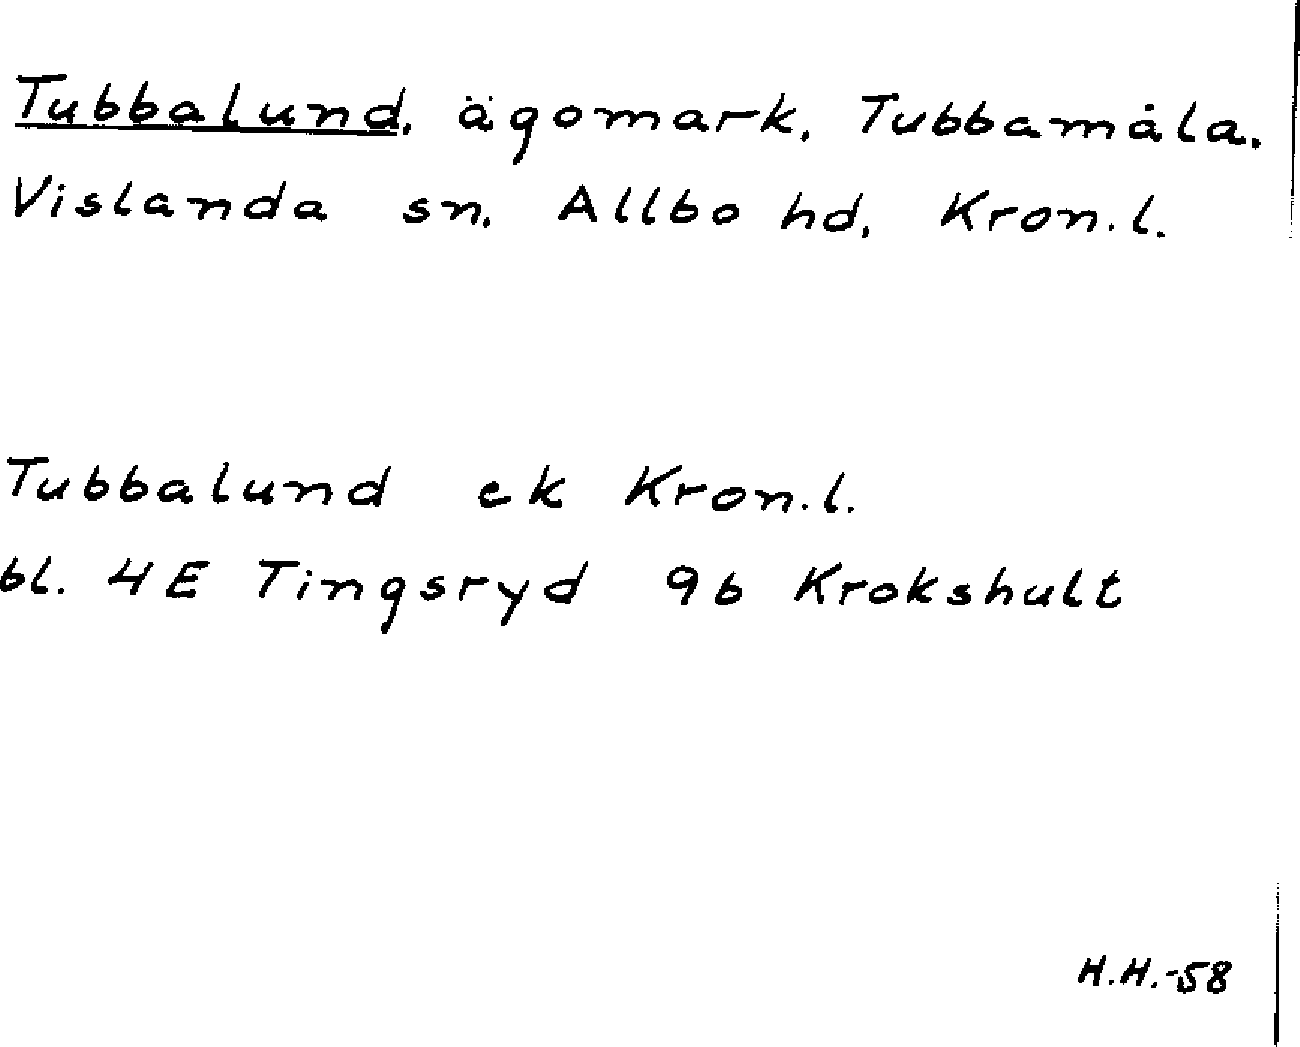 Tubbalund, ägomark, Tubbamåla,
Vislanda sn, Allbo hd, Kron.l.
Tubbalund ek Kron.l.
bl. 4E Tingsryd 9b Krokshult
H.H.-58